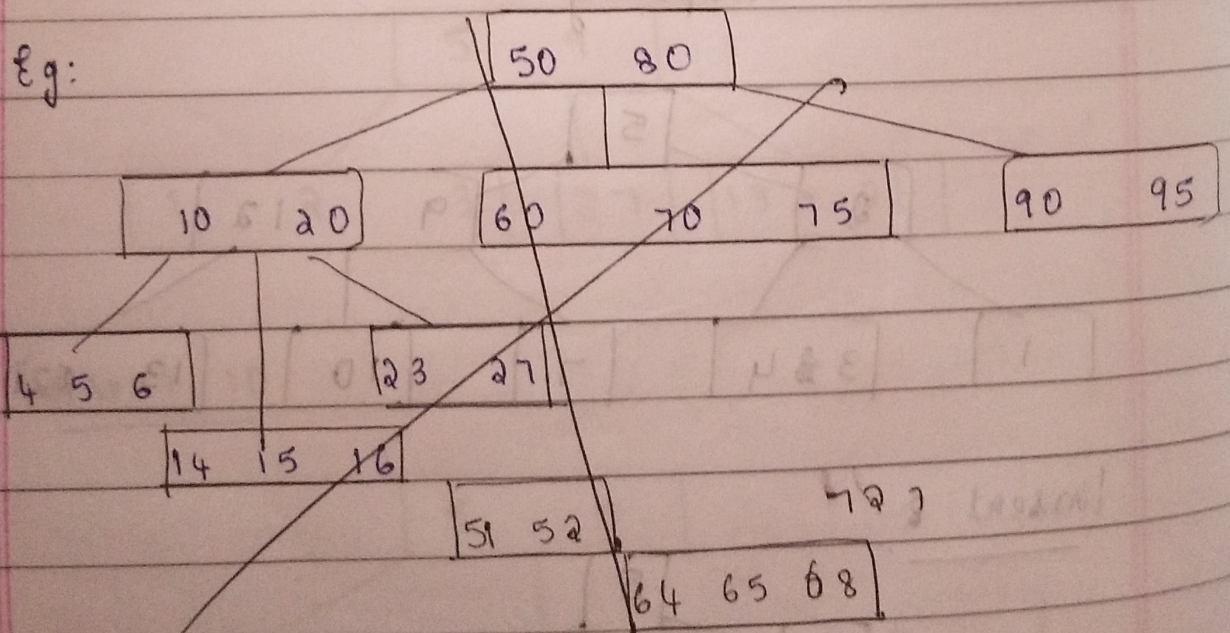 Eg:
50 80
10 20 60 70 75 90 95
4 5 6 23 27
14 15 16
51 52
64 65 68